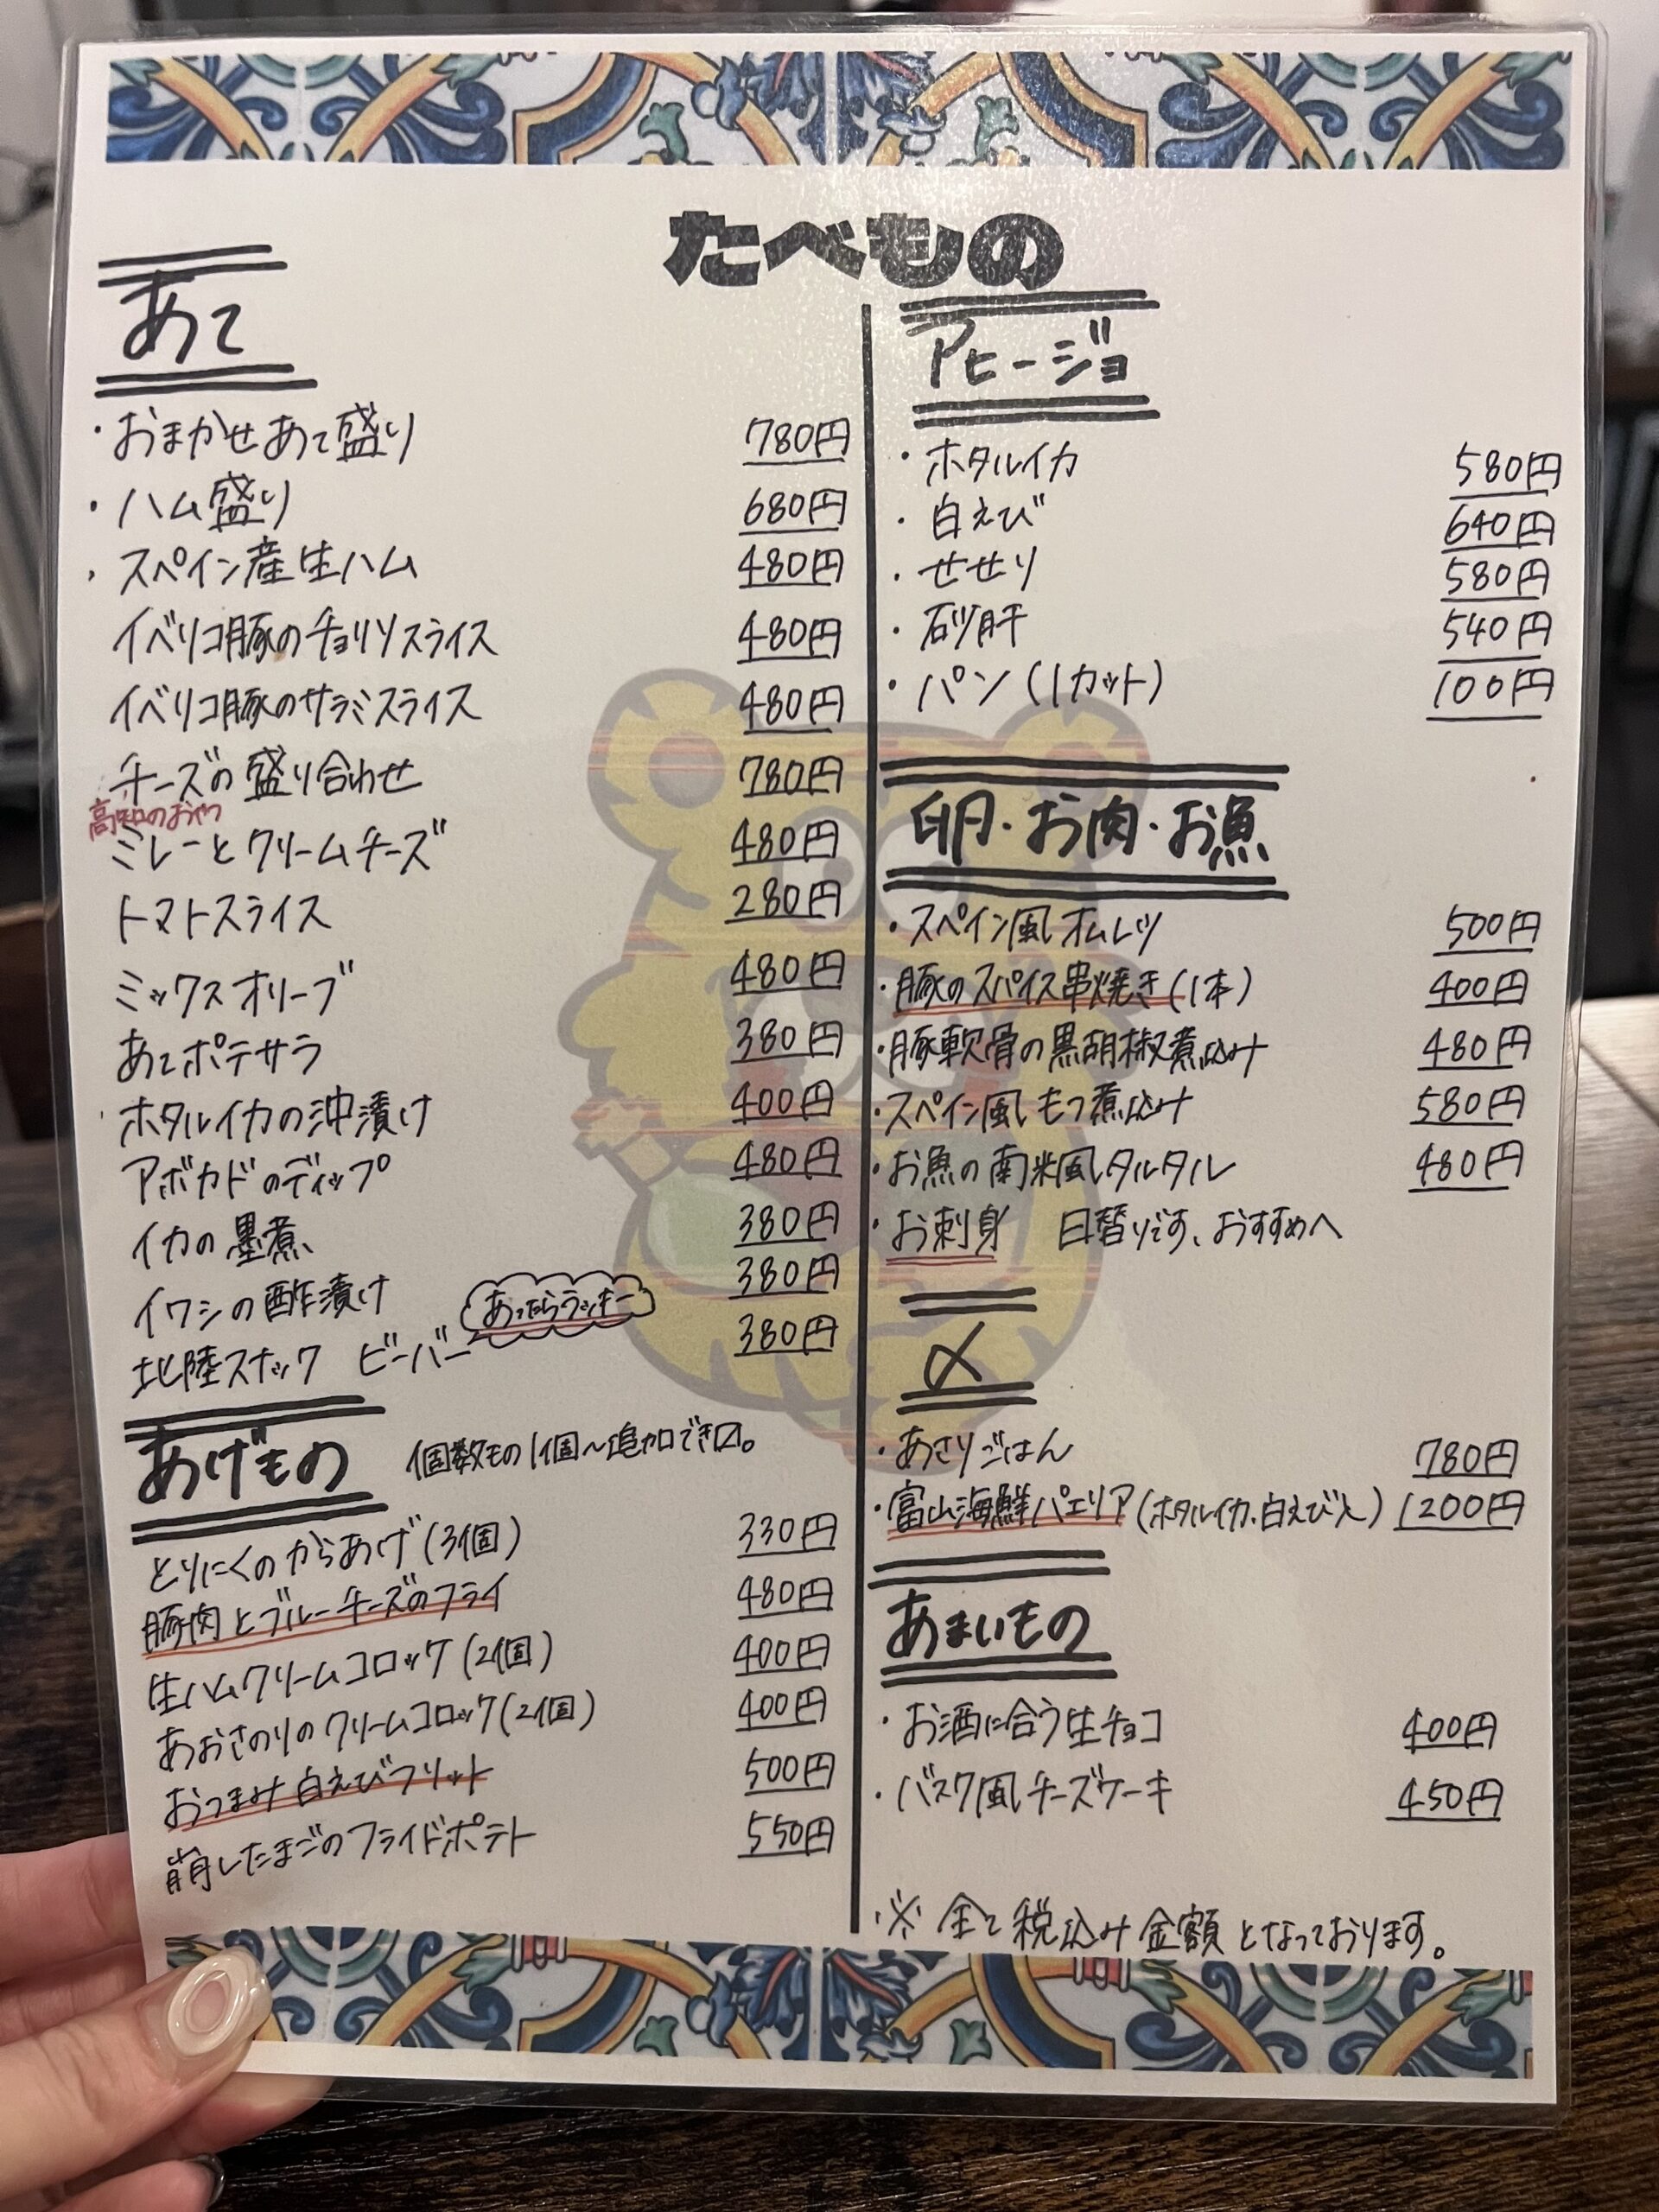 たべもの
あて
・おまかせあて盛り 780円
・ハム盛り 680円
・スペイン産生ハム 480円
イベリコ豚のチョリソスライス 480円
イベリコ豚のサラミスライス 480円
チーズの盛り合わせ 780円
高知のおやつ
ミレーとクリームチーズ 480円
トマトスライス 280円
ミックスオリーブ 480円
あてポテサラ 380円
ホタルイカの沖漬け 400円
アボカドのディップ 480円
イカの墨煮 380円
イワシの酢漬け 380円
あったらラッキー
北陸スナック ビーバー 380円
あげもの 個数もの1個〜追加でき〼。
とりにくのからあげ(3個) 330円
豚肉とブルーチーズのフライ 480円
生ハムクリームコロッケ(2個) 400円
あおさのりのクリームコロッケ(2個) 400円
おつまみ白えびフリット 500円
崩したまごのフライドポテト 550円
アヒージョ
・ホタルイカ 580円
・白えび 640円
・せせり 580円
・砂肝 540円
・パン(1カット) 100円
卵・お肉・お魚
・スペイン風オムレツ 500円
・豚のスパイス串焼き(1本) 400円
・豚軟骨の黒胡椒煮込み 480円
・スペイン風もつ煮込み 580円
・お魚の南米風タルタル 480円
・お刺身 日替りです、おすすめへ
〆
・あさりごはん 780円
・富山海鮮パエリア(ホタルイカ、白えび入) 1200円
あまいもの
・お酒に合う生チョコ 400円
・バスク風チーズケーキ 450円
※全て税込み金額となっております。